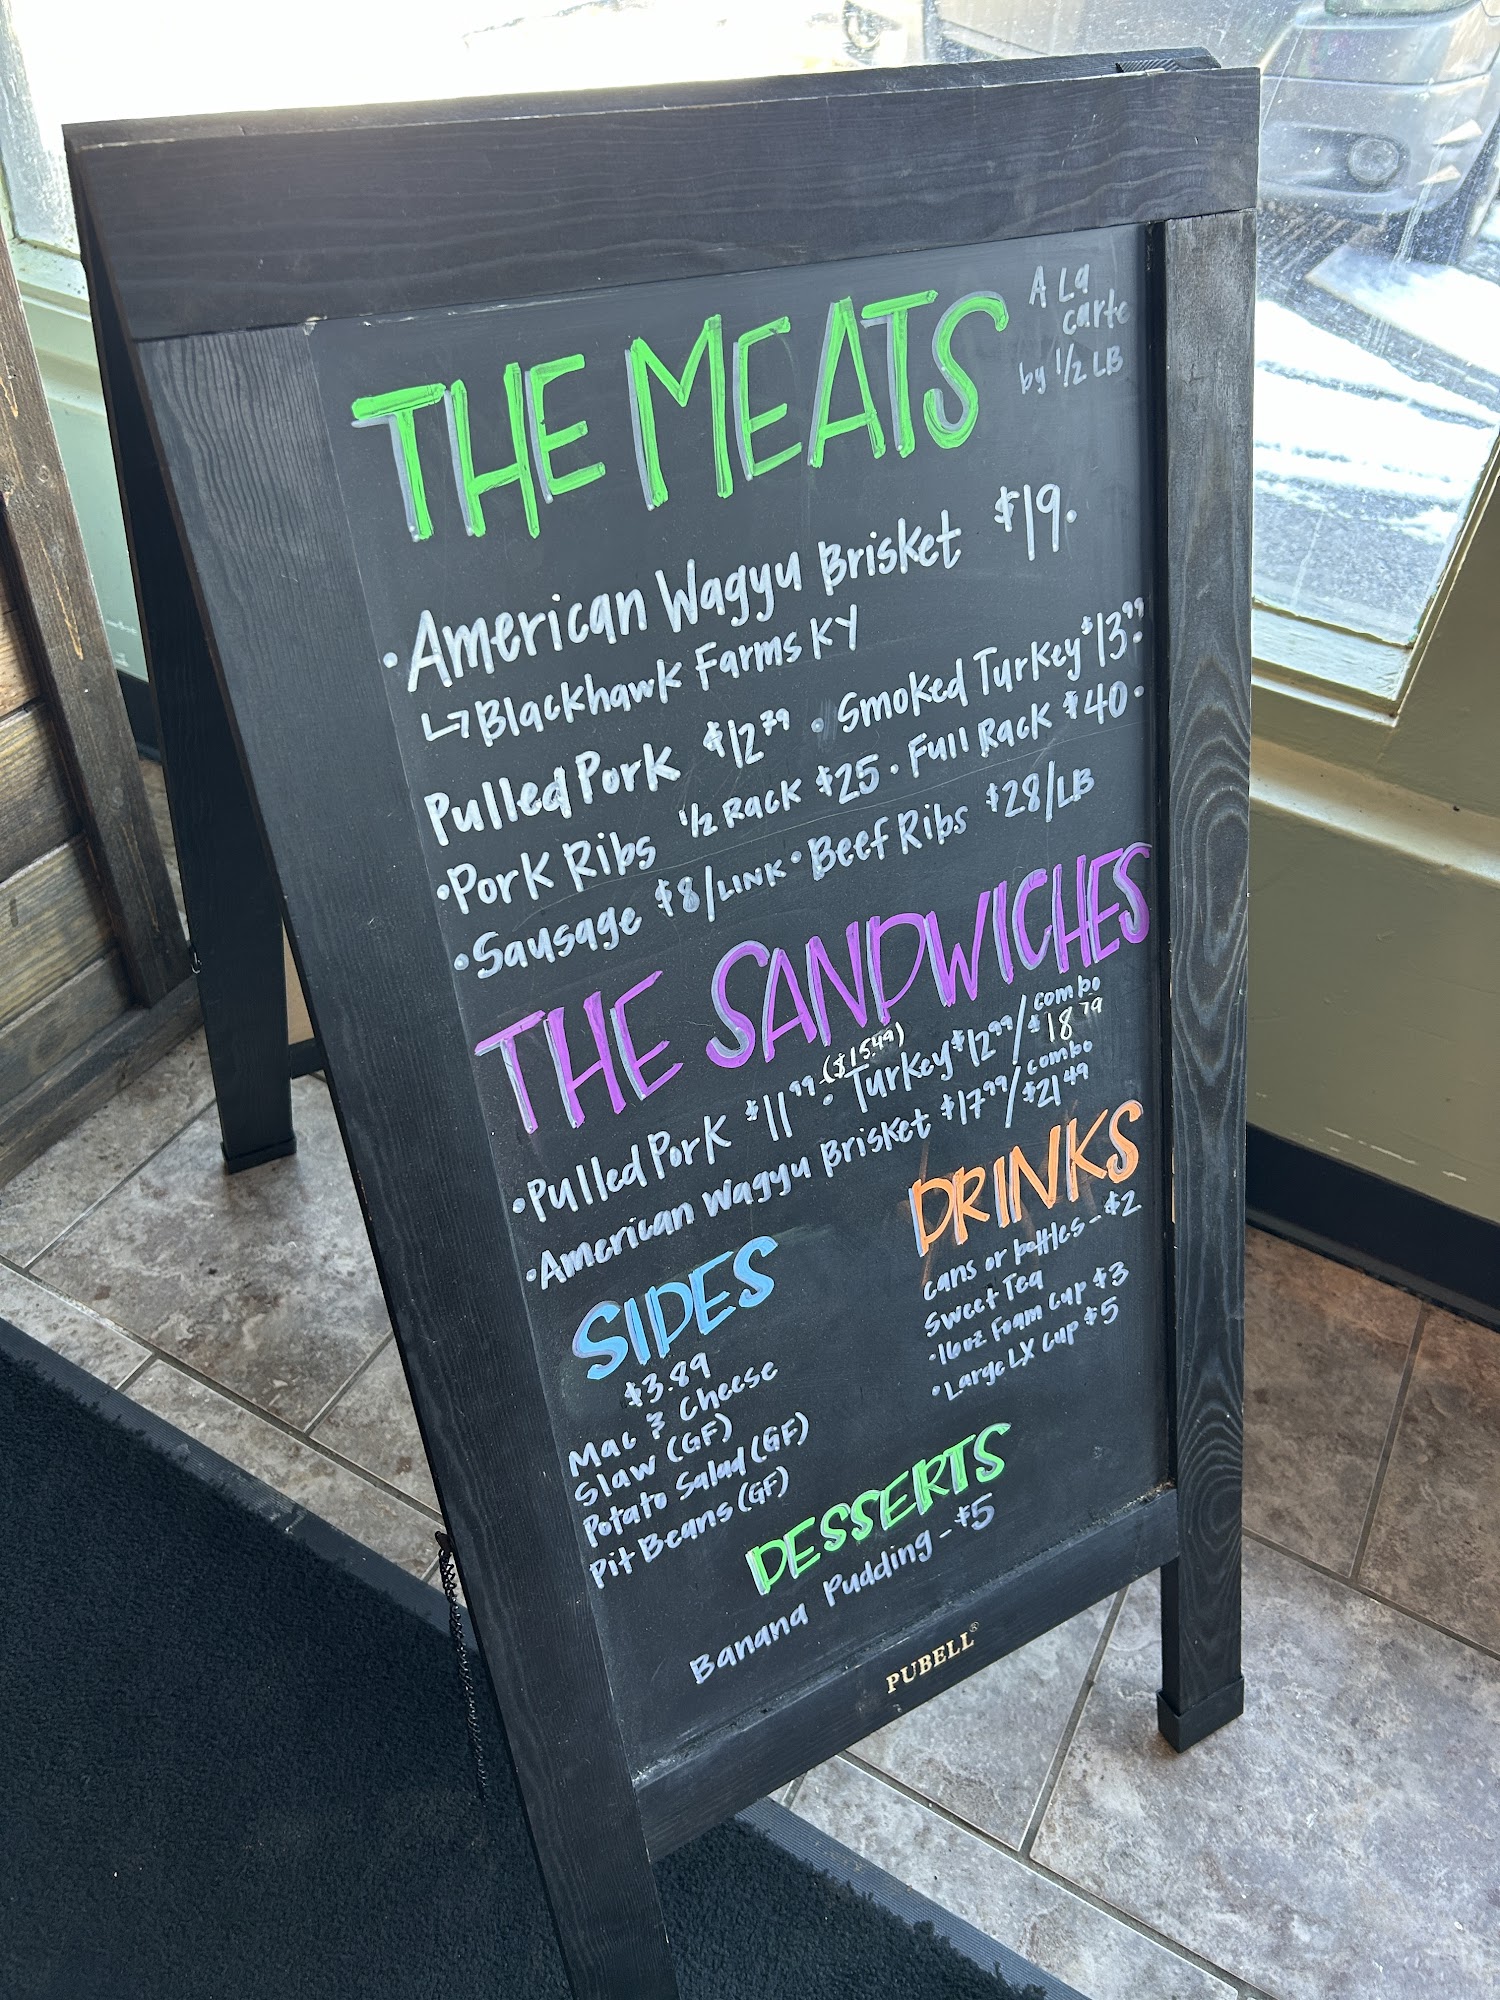 THE MEATS
A La
carte
by 1/2 LB
• American Wagyu Brisket $19.
↳ Blackhawk Farms KY
Pulled Pork $12.79 • Smoked Turkey $13.99
• Pork Ribs 1/2 Rack $25 • Full Rack $40 •
• Sausage $8/LINK • Beef Ribs $28/LB
THE SANDWICHES
• Pulled Pork $11.99 ($15.49) • Turkey $12.99/combo $18.79
• American Wagyu Brisket $17.99/combo $21.49
SIDES
$3.89
Mac & Cheese
Slaw (GF)
Potato Salad (GF)
Pit Beans (GF)
DRINKS
cans or bottles - $2
Sweet Tea
• 16oz Foam Cup $3
• Large LX Cup $5
DESSERTS
Banana Pudding - $5
PUBELL®